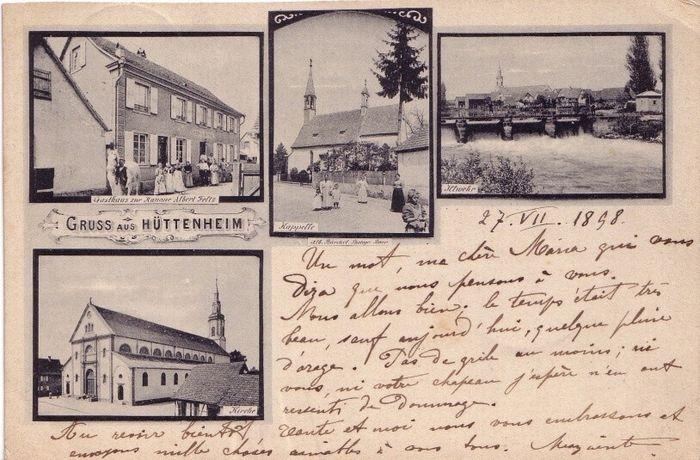 Gasthaus zur Kanone Albert Feltz
Kappelle
Illwehr
GRUSS AUS HÜTTENHEIM
Kirche
27. VII. 1898.
Un mot, ma chère Maria qui vous
dira que nous pensons à vous.
Nous allons bien. le temps était très
beau, sauf aujourd'hui, quelque pluie
d'orage. Pas de grêle au moins; ni
vous, ni votre chapeau j'espère n'en ont
ressenti de Dommage.
tante et moi nous vous embrassons et
Au revoir bientôt,
envoyons mille choses aimables à vous tous.